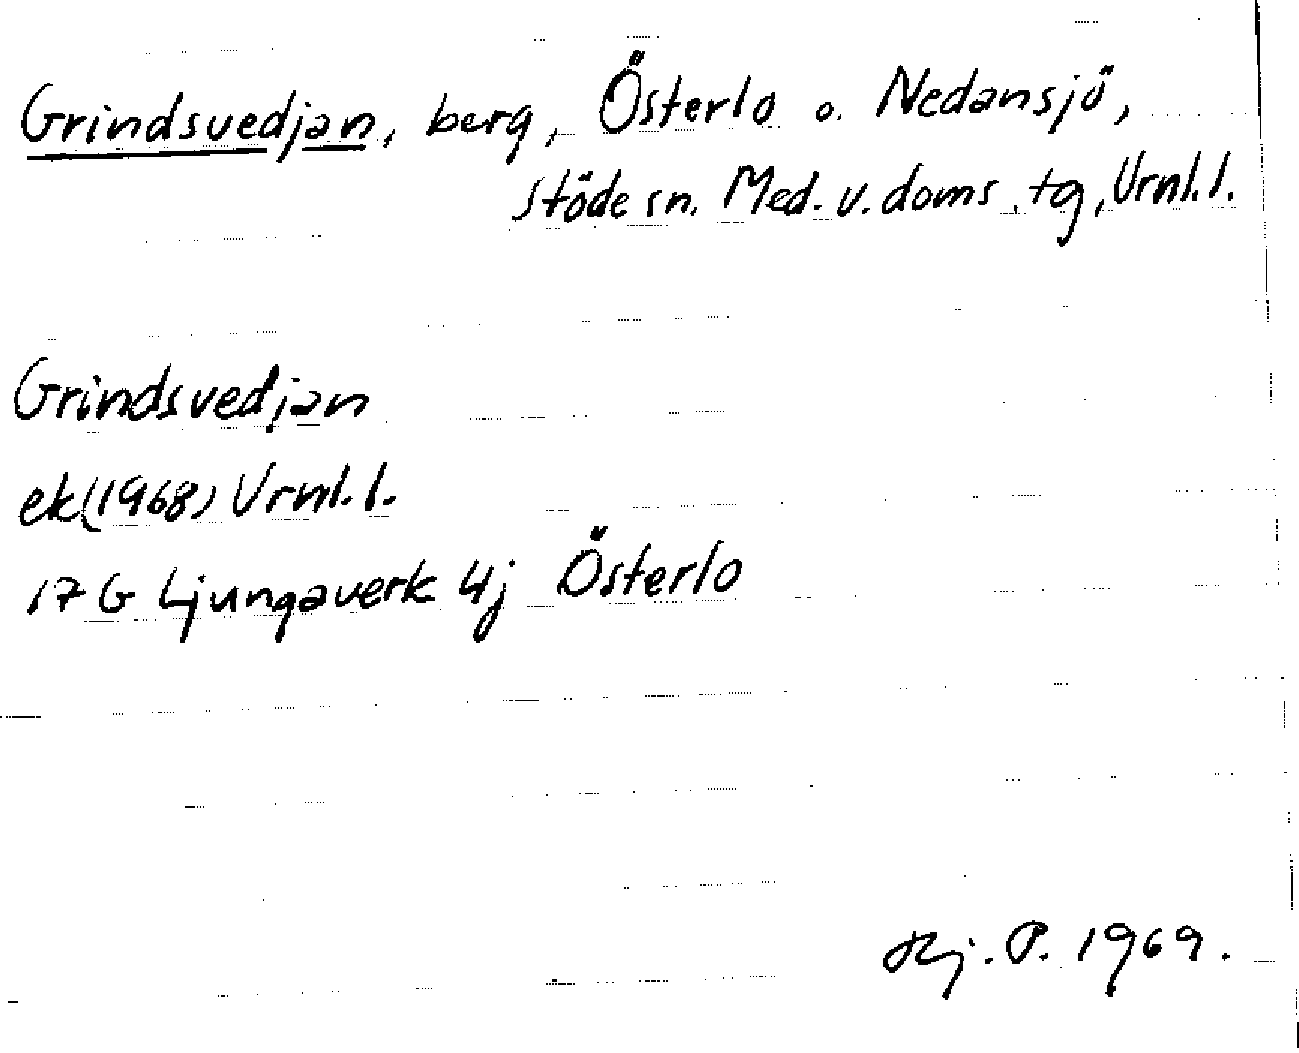 Grindsvedjan, berg, Österlo o. Nedansjö,
Stöde sn. Med. v. doms. tg, Vrnl. l.
Grindsvedjan
ek (1968) Vrnl. l.
17 G Ljungaverk 4j Österlo
Hj. P. 1969.